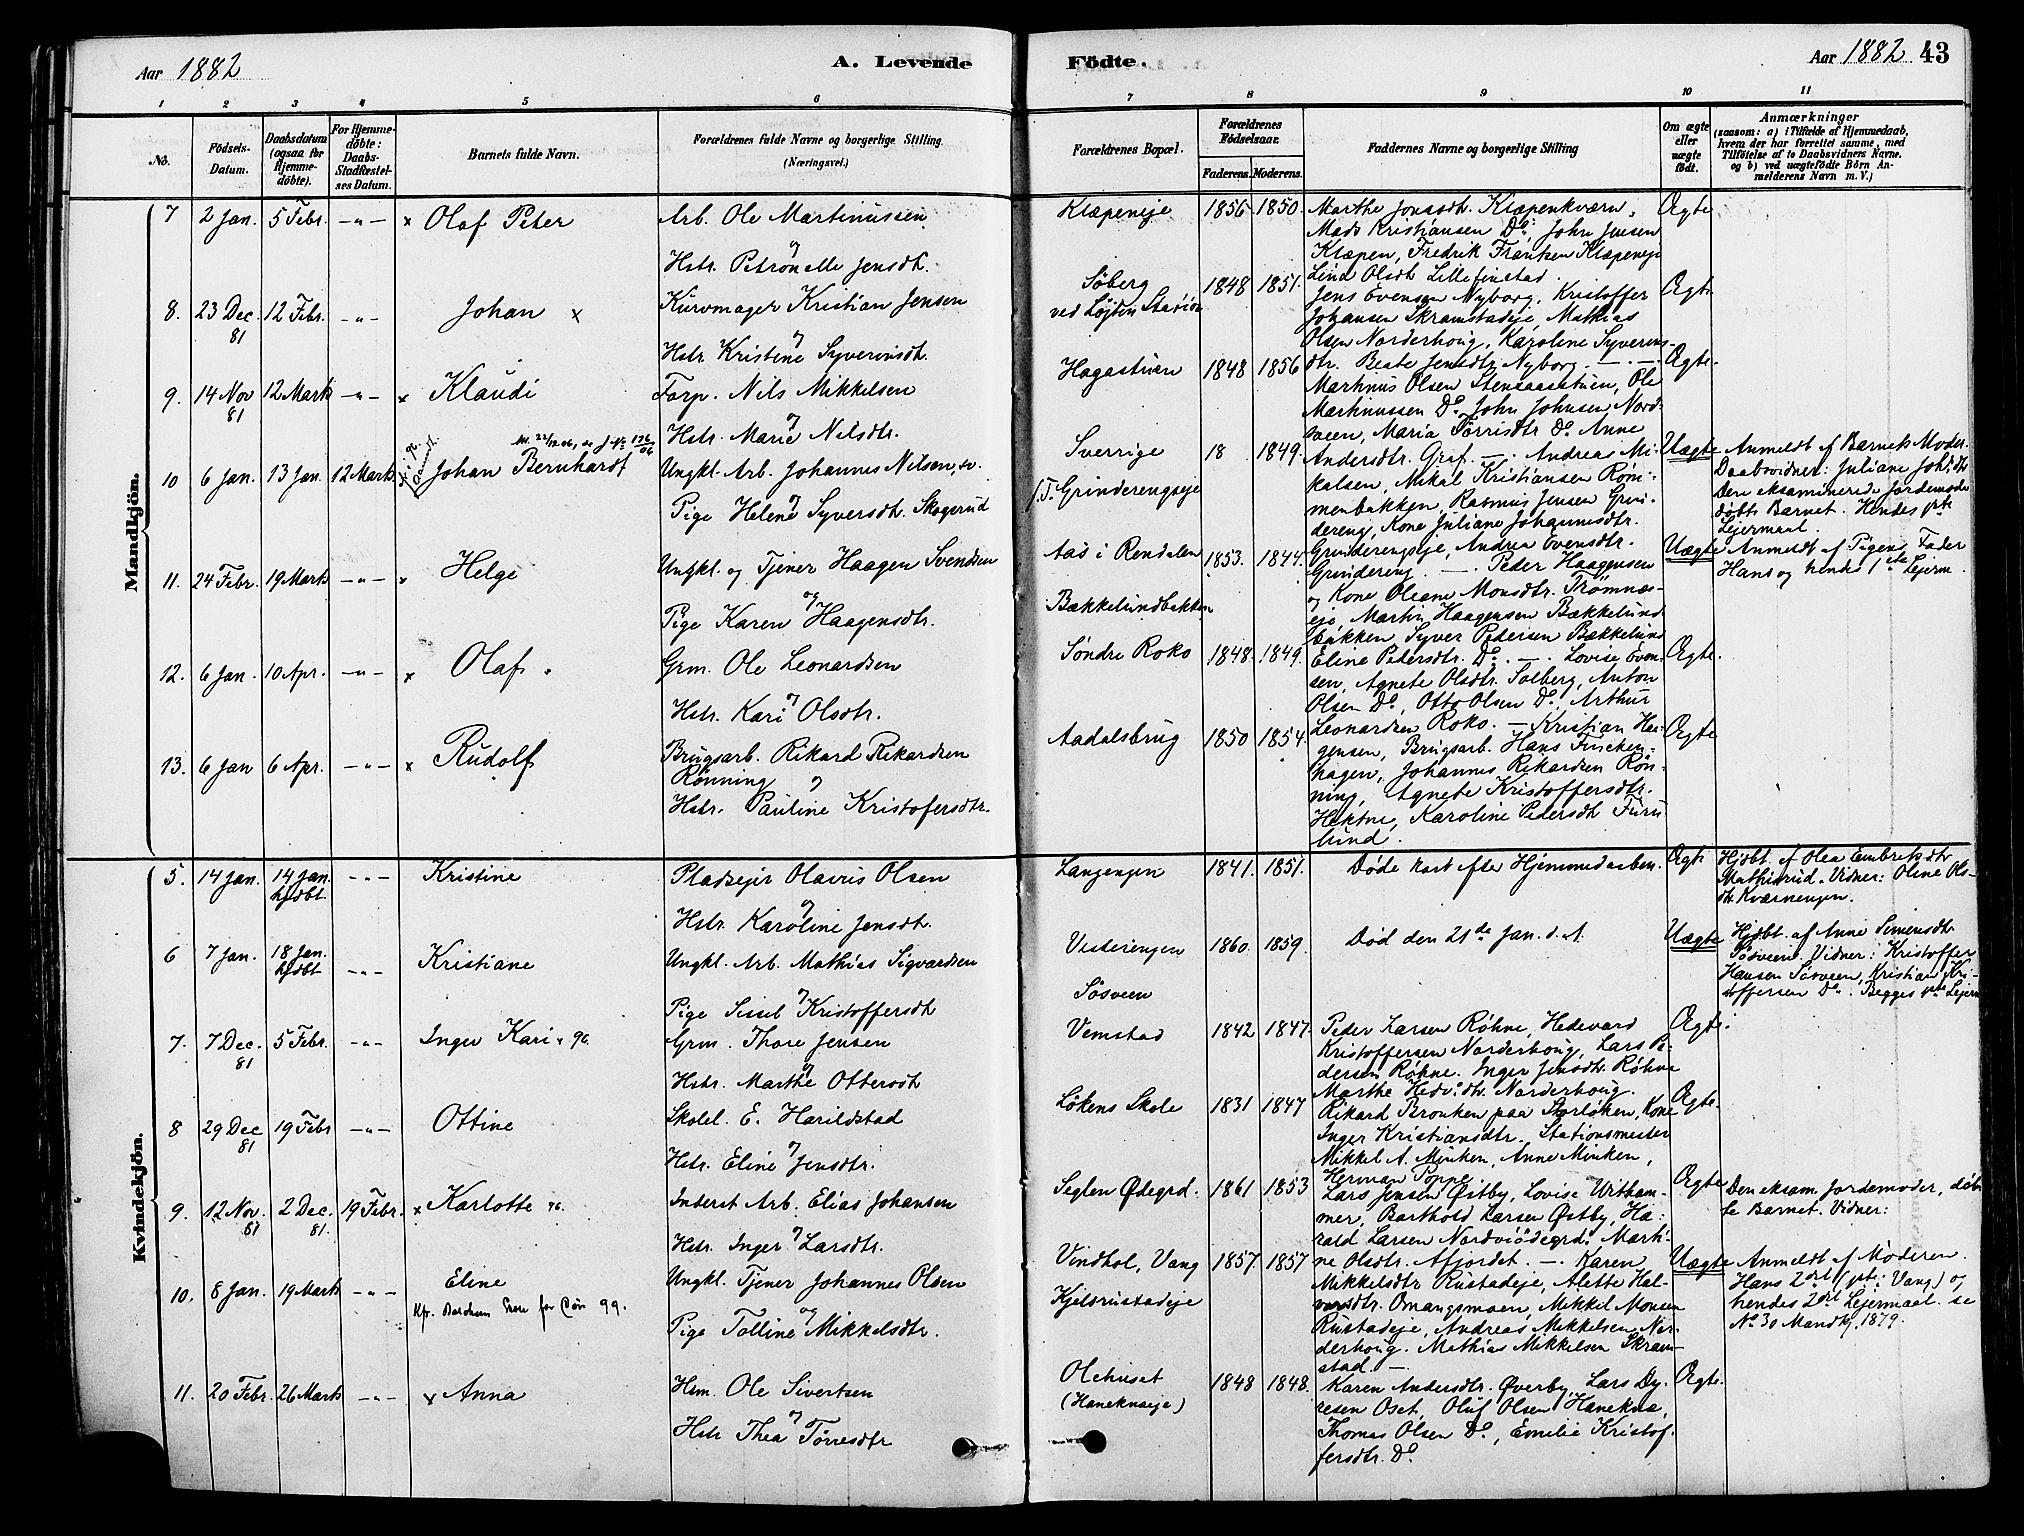 Aar 1882
A. Levende
Födte.
Aar 1882 43
1 2 3 4 5 6 7 8 9 10 11
No.
Födsels-Datum.
Daabsdatum (ogsaa for Hjemmedöbte).
For Hjemmedöbte: Daabs-Stadfæstelses Datum.
Barnets fulde Navn.
Forældrenes fulde Navne og borgerlige Stilling.
(Næringsvei.)
Forældrenes Bopæl.
Forældrenes Födselsaar.
Faderens. Moderens.
Faddernes Navne og borgerlige Stilling
Om ægte eller uægte födt.
Anmærkninger
(saasom: a) i Tilfælde af Hjemmedaab,
hvem der har forrettet samme, med
Tilföielse af to Daabsvidners Navne.
og b) ved uægtefödte Börn An-
melderens Navn m. V.)
Mandkjön.
7 2 Jan. 5 Febr. -"- x Olaf Peter
Arb. Ole Martinussen
og
Hstr. Petronelle Jensdt.
Klæpeneje 1856 1850.
Marthe Jonsdt. Klæpenkværn,
Mads Kristiansen Do, John Jensen
Klæpen, Fredrik Frantzen Klæpeneje
Lind Olsdt Lillefinstad.
Ægte
8. 23 Dec. 81 12 Febr. -"- Johan x
Kurvmager Kristian Jensen
og
Hstr. Kristine Syverinsdt.
Søberg
ved Løjten Station
1848 1851.
Jens Evensen Nyborg, Kristoffer
Johansen Skramstadeje, Mathias
Olsen Norderhoug, Karoline Syverins-
dtr. Beate Jensdtr Nyborg. — . —
Ægte
9. 14 Nov 81 12 Marts -"- x Klaudi
Forp. Nils Mikkelsen
og
Hstr. Marie Nilsdtr.
Hagastuen 1848 1856
Martinus Olsen Stensaasstuen, Ole
Martinussen Do, John Johnsen Nord-
sveen, Maria Torrisdtr Do. Anne
Andersdtr. Graf. — . —
Ægte.
10 6 Jan. 13 Jan. 12 Marts Johan Bernhardt
Ungkl. Arb. Johannes Nilsen, sv.
og
Pige Helene Syversdt. Skogerud
Sverrige
Grinderengseje
18 1849.
Andreas Mi-
kalsen, Mikal Kristiansen Røm-
menbakken, Rasmus Jensen Grin-
dereng, Kone Juliane Johannesdtr.
Grinderengseje, Andrea Evensdtr.
Grindereng. — . —
Uægte
Anmeldt af Barnets Moder.
Daabsvidner: Juliane Joh.dtr
Den eksaminerede Jordemoder
døbte Barnet. Hendes 1ste
Lejermaal.
11. 24 Febr. 19 Marts -"- x Helge
Ungkl. og Tjener Haagen Svendsen
og
Pige Karen Haagensdtr.
Aas i Rendalen
Bækkelundbakken
1853. 1844.
Peder Haagensen
og Kone Oleane Monsdtr. Trømnæs-
eje, Martin Haagensen Bækkelund
bakken Syver Pedersen Bækkelund
Eline Pedersdtr. Do. — . —
Uægte
Anmeldt af Pigens Fader
Hans og hendes 1ste Lejerm.
12. 6 Jan. 10 Apr. -"- x Olaf
Grm. Ole Leonardsen
og
Hstr. Kari Olsdtr.
Søndre Roko 1848. 1849.
Lovise Even-
sen, Agnete Olsdtr. Solberg, Anton
Olsen Do, Otto Olsen Do, Arthur
Leonardsen Roko. —
Ægte.
13. 6 Jan 6 Apr. -"- x Rudolf
Brugsarb. Rikard Rikardsen
Rønning og
Hstr. Pauline Kristofersdtr.
Aadalsbrug 1850 1854.
Kristian Haa-
gensen, Brugsarb. Hans Fincken-
hagen, Johannes Rikardsen Røn-
ning, Agnete Kristoffersdtr.
Hektne, Karoline Pedersdt Furu
lund.
Ægte
Kvindekjön.
5. 14 Jan. 14 Jan. hjdbt. -"- Kristine
Pladsejer Olavus Olsen
og
Hstr. Karoline Jensdt.
Langengen 1841. 1851.
Døde kort efter Hjemmedaaben.
Ægte
Hjdbt. af Olea Embretsdtr
Mathisrud. Vidner: Oline Ols-
dtr. Kværnengen.
6 7 Jan. 18 Jan. hjdbt -"- Kristiane
Ungkl. Arb. Mathias Sigvardsen
og
Pige Sissel Kristoffersdt
Vesterengen
Søsveen
1860. 1859.
Død den 21de Jan. d. A.
Uægte
Hjdbt. af Anne Simensdtr.
Søsveen. Vidner: Kristoffer
Hansen Søsveen, Kristian Kri-
stoffersen Do. Begges 1ste Lejerm
7. 7 Dec. 81 5 Febr. -"- Inger Kari
Grm. Thore Jensen
og
Hstr. Marthe Ottersdt
Vemstad 1842 1847.
Peder Larsen Røhne, Hedevard
Kristoffersen Norderhoug, Lars Pe-
dersen Røhne. Inger Jensdtr. Røhne
Marthe Hedv.dtr. Norderhoug.
Ægte.
8 29 Dec 81 19 Febr -"- Ottine
Skolel. E. Harildstad
og
Hstr. Eline Jensdtr.
Løkens Skole 1831 1847
Rikard Bronken paa Storløken, Kone
Inger Kristiansdtr. Stationsmester
Mikkel A. Minken, Anne Minken,
Herman Poppe
Ægte.
9. 12 Nov. 81 2 Dec. 81. 19 Febr. x Karlotte
Inderst Arb. Elias Johansen
og
Hstr. Inger Larsdtr.
Seglen Ødegrd. 1861 1853
Lars Jensen Østby, Lovise Uitham-
mer, Barthold Larsen Østby, Ha-
rald Larsen Nordviødegrd. Marti-
ne Olsdtr. Afjordet. — . —
Ægte
Den eksam. Jordemoder, døb-
te Barnet. Vidner:
10. 8 Jan. 19 Marts -"- Eline
Ungkl. Tjener Johannes Olsen
og
Pige Tolline Mikkelsdtr.
Vindhol, Vang
Kjelsrustadeje
1857. 1857
Karen
Mikkelsdtr Rustadeje, Alette Hal-
vorsdtr. Omangsmoen, Mikkel Monsen
Rustadeje, Andreas Mikkelsen Nor-
derhoug. Mathias Mikkelsen Skram-
stad. —
Uægte
Anmeldt af Moderen.
Hans 2det (1ste: Vang) og
hendes 2det Lejermaal. se
No 30 Mandkj. 1879.
11. 20 Febr. 26 Marts -"- x Anna
Hsm. Ole Sivertsen
og
Hstr Thea Torresdtr
Olehuset
(Haneknæeje)
1848 1848.
Karen Andersdtr. Øverby, Lars Dy-
resen Oset. Oluf Olsen Hanekna,
Thomas Olsen Do, Emilie Kristof-
fersdtr. Do
Ægte.